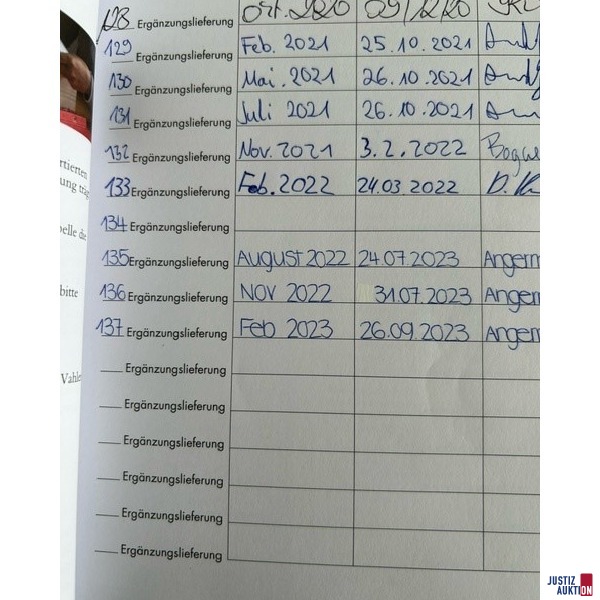 128 Ergänzungslieferung Okt. 2020
129 Ergänzungslieferung Feb. 2021 25.10.2021
130 Ergänzungslieferung Mai. 2021 26.10.2021
131 Ergänzungslieferung Juli 2021 26.10.2021
132 Ergänzungslieferung Nov. 2021 3.2.2022
133 Ergänzungslieferung Feb. 2022 24.03.2022
134 Ergänzungslieferung
135 Ergänzungslieferung August 2022 24.07.2023 Angerm
136 Ergänzungslieferung Nov 2022 31.07.2023 Angerm
137 Ergänzungslieferung Feb 2023 26.09.2023 Angerm
Ergänzungslieferung
Ergänzungslieferung
Ergänzungslieferung
Ergänzungslieferung
Ergänzungslieferung
Ergänzungslieferung
rtierten
ung träg
belle die
bitte
Vahlen
JUSTIZ
AUKTION